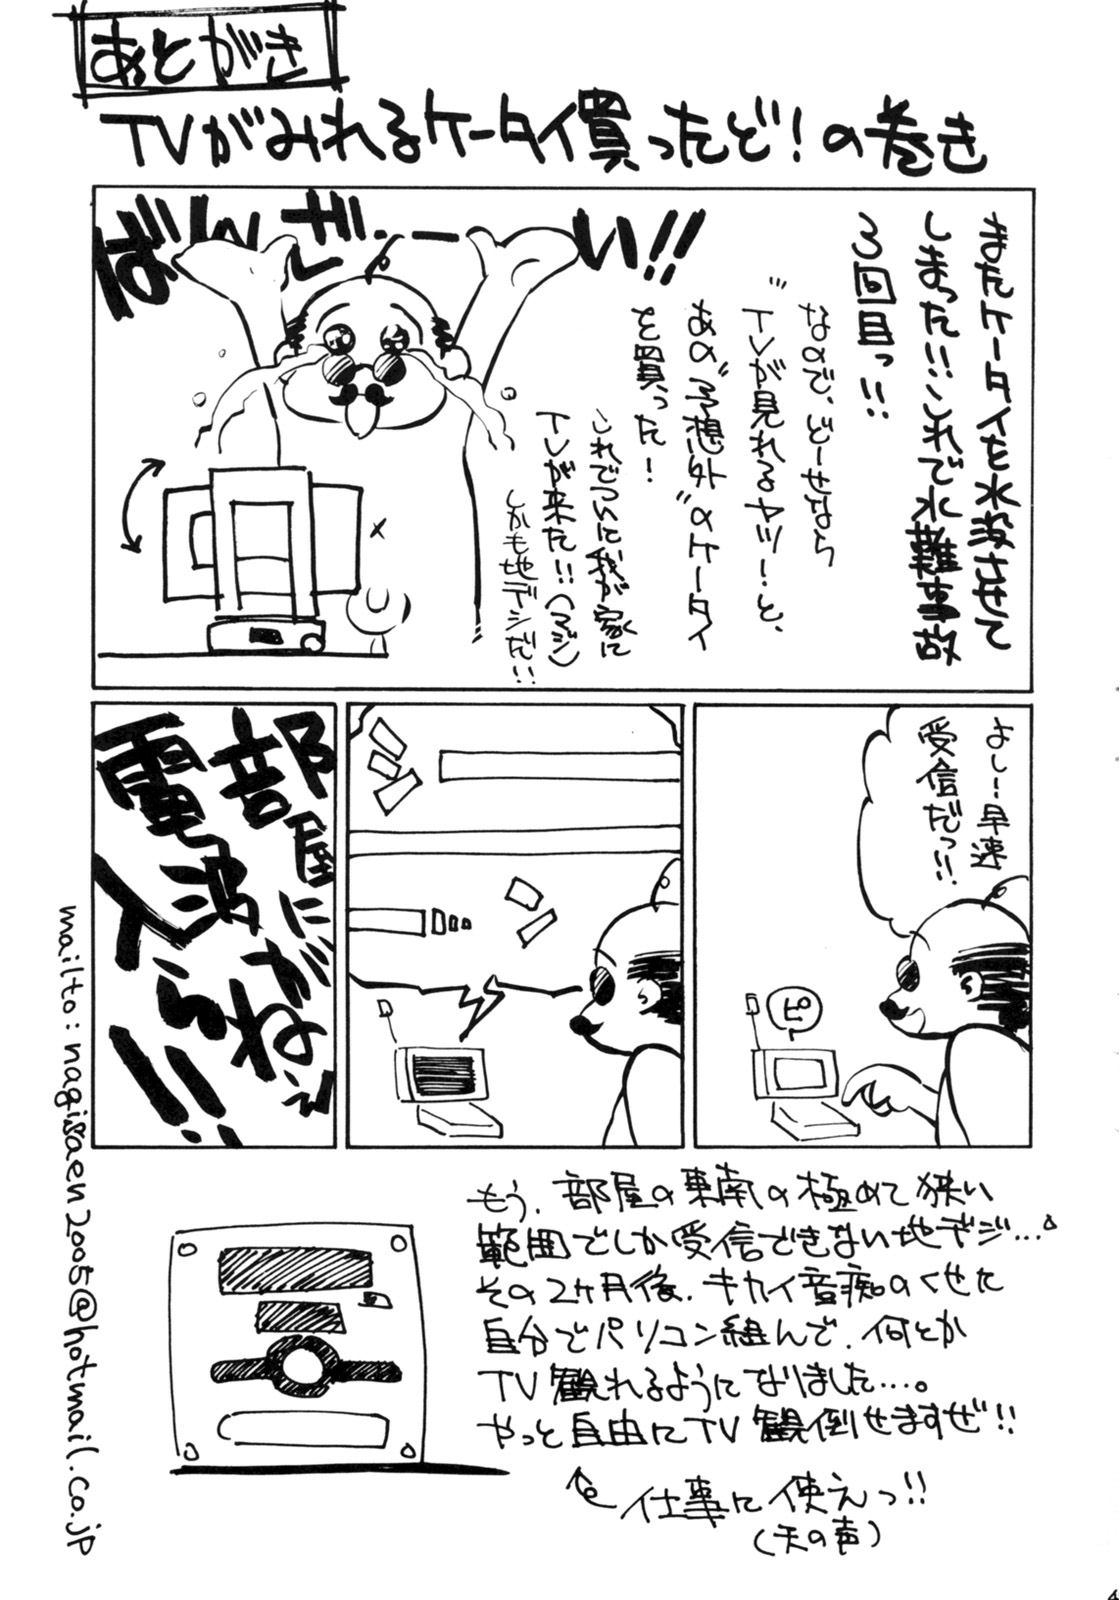 あとがき
TVがみれるケータイ買ったど!の巻き
またケータイを水没させて
しまった!!これで水難事故
3回目っ!!
なので、どーせなら
"TVが見れるヤツ!"と、
あの"予想外"のケータイ
を買った!
ばんざーい!!
これでついに我が家に
TVが来た!!(マジ)
しかも地デジだ!!
よし!早速
受信だっ!!
ピ
部屋に
電波がねぇ
入らー!!
もう、部屋の東南の極めて狭い
範囲でしか受信できない地デジ…。
その2ヶ月後、キカイ音痴のくせに
自分でパソコン組んで、何とか
TV観れるようになりました…。
やっと自由にTV観倒せますぜ!!
仕事に使えっ!!
(天の声)
mailto:nagisaen2005@hotmail.co.jp
4